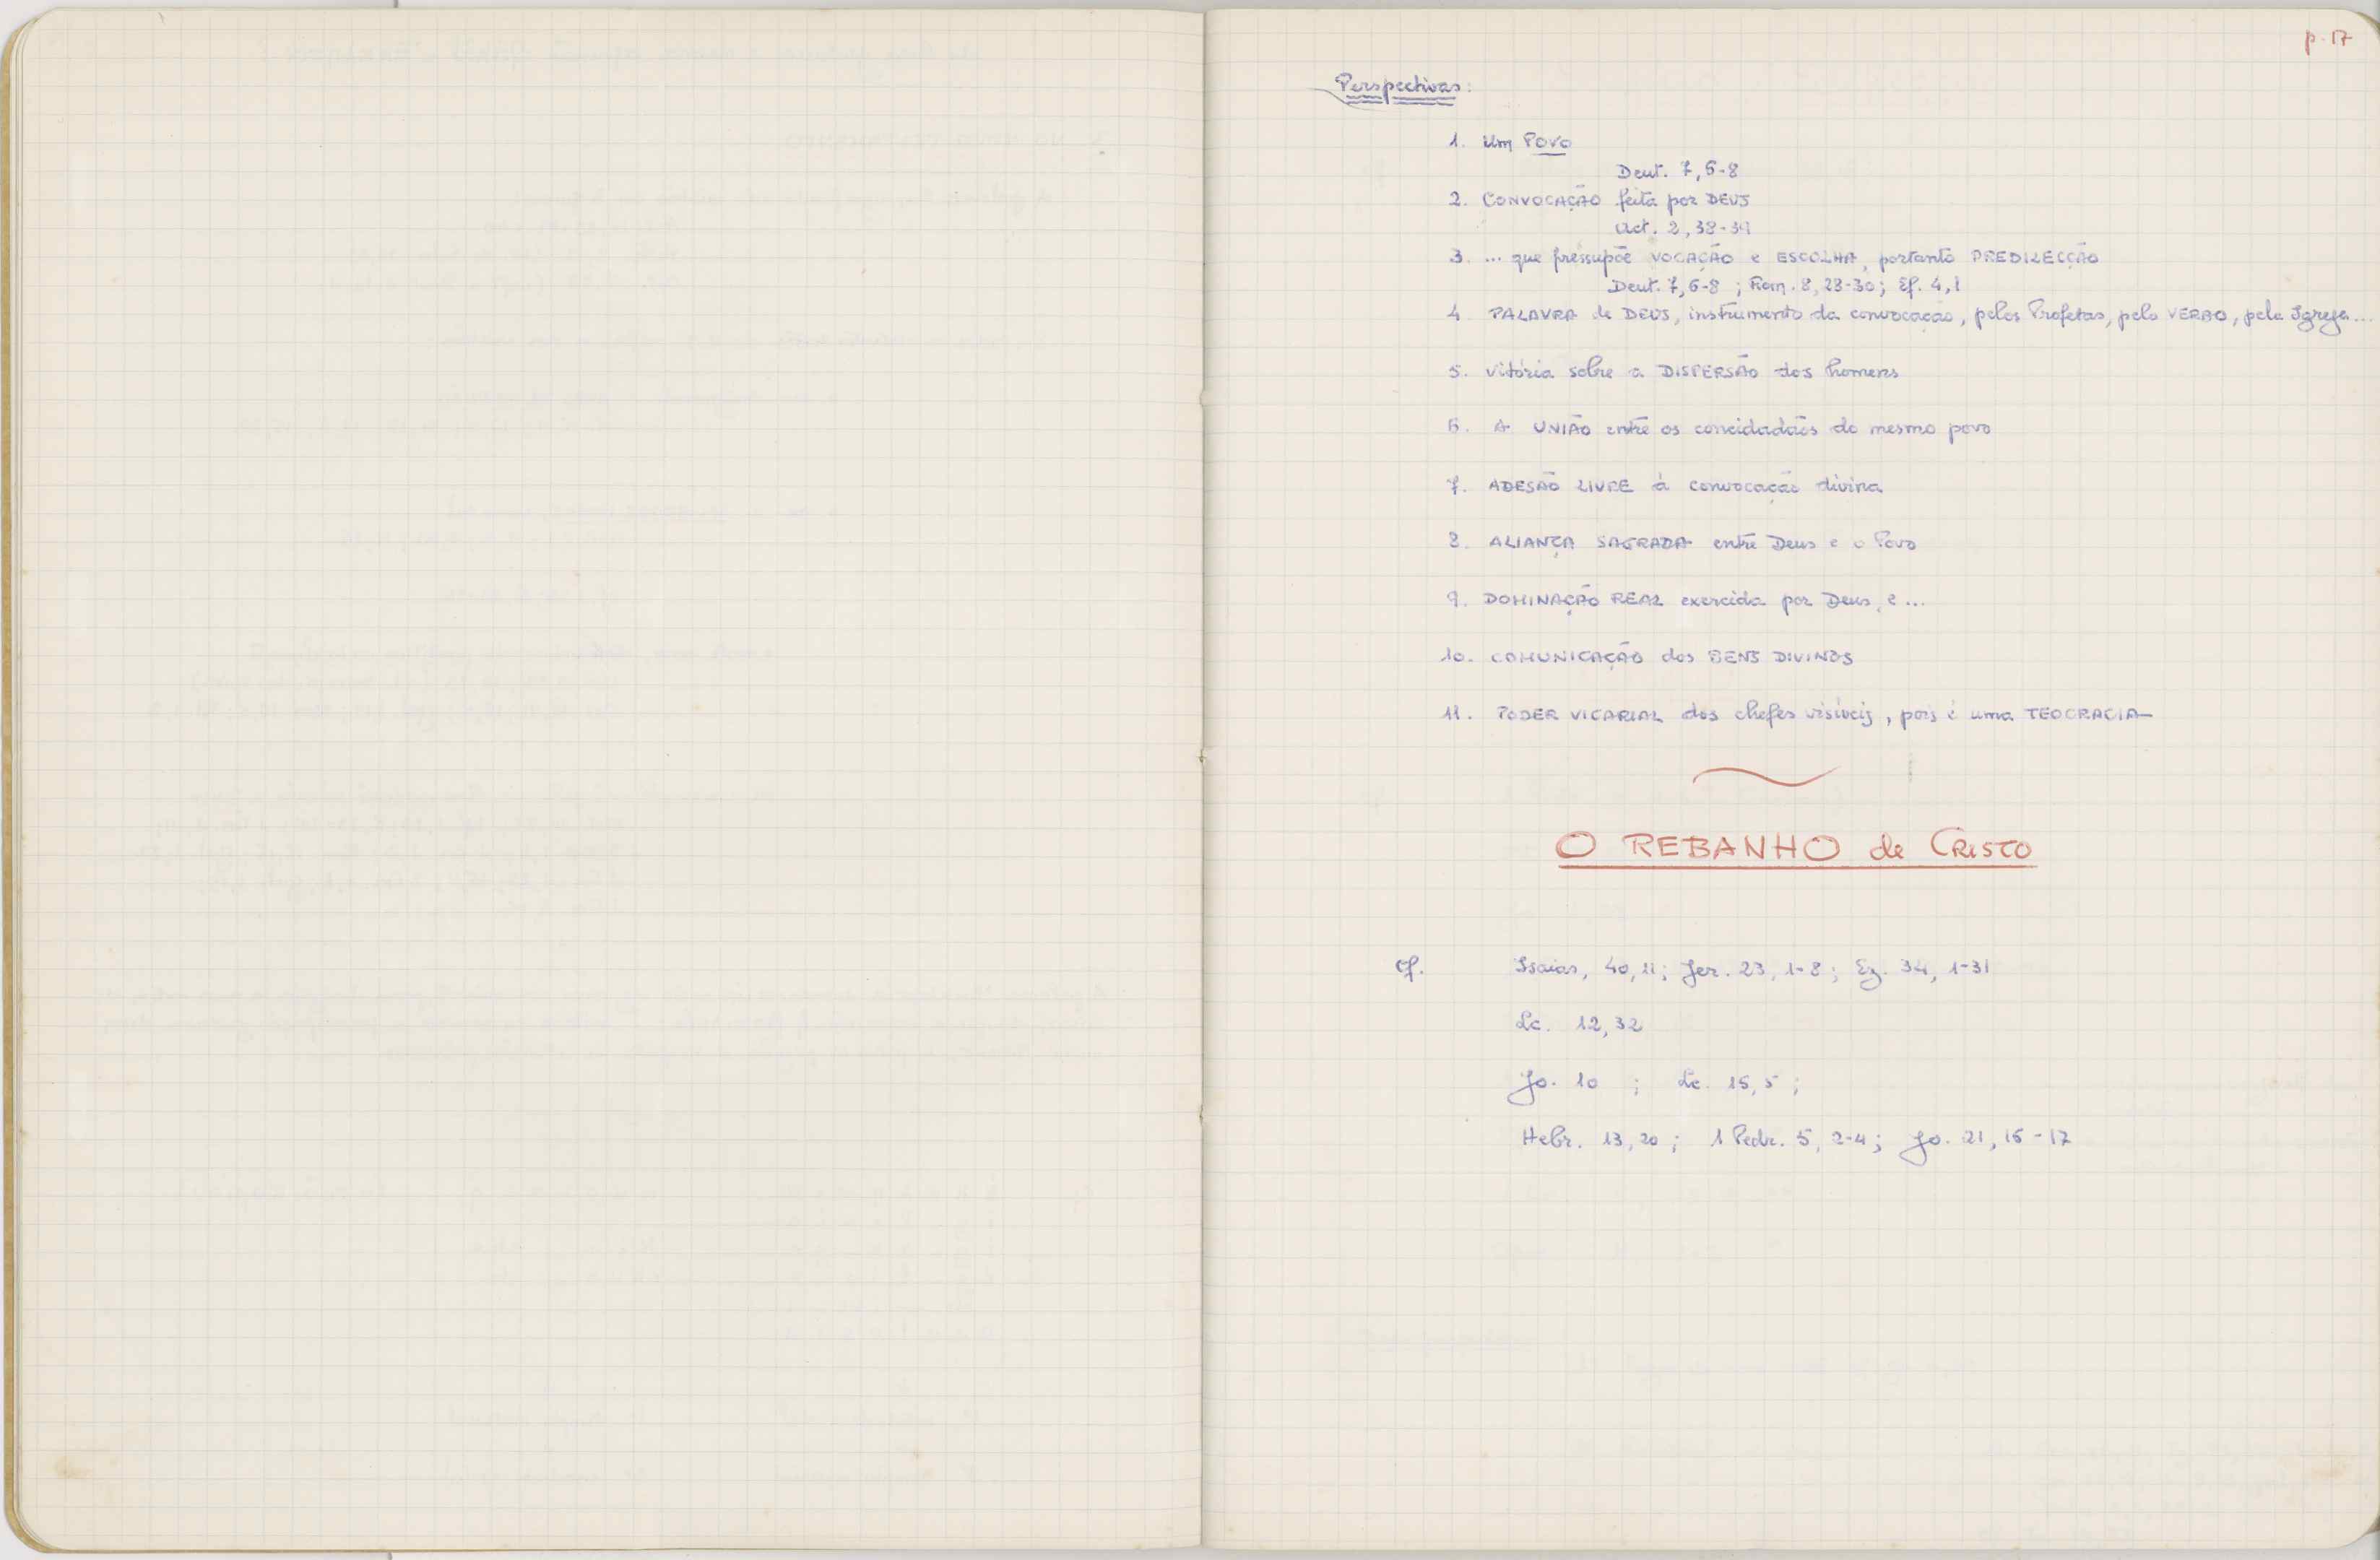 p. 17
Perspectivas:
1. Um Povo
Deut. 7, 6-8
2. CONVOCAÇÃO feita por DEUS
Act. 2, 38-39
3. ... que pressupõe VOCAÇÃO e ESCOLHA, portanto PREDILECÇÃO
Deut. 7, 6-8 ; Rom. 8, 28-30 ; Ef. 4, 1
4. PALAVRA de DEUS, instrumento da convocação, pelos Profetas, pelo VERBO, pela Igreja ...
5. Vitória sobre a DISPERSÃO dos homens
6. A UNIÃO entre os concidadãos do mesmo povo
7. ADESÃO LIVRE à convocação divina
8. ALIANÇA SAGRADA entre Deus e o Povo
9. DOMINAÇÃO REAL exercida por Deus, e ...
10. COMUNICAÇÃO dos BENS DIVINOS
11. PODER VICARIAL dos chefes visíveis, pois é uma TEOCRACIA
O REBANHO de CRISTO
Cf. Isaias, 40, 11 ; Jer. 23, 1-8 ; Ez. 34, 1-31
Lc. 12, 32
Jo. 10 ; Lc. 15, 5 ;
Hebr. 13, 20 ; 1 Pedr. 5, 2-4 ; Jo. 21, 15-17